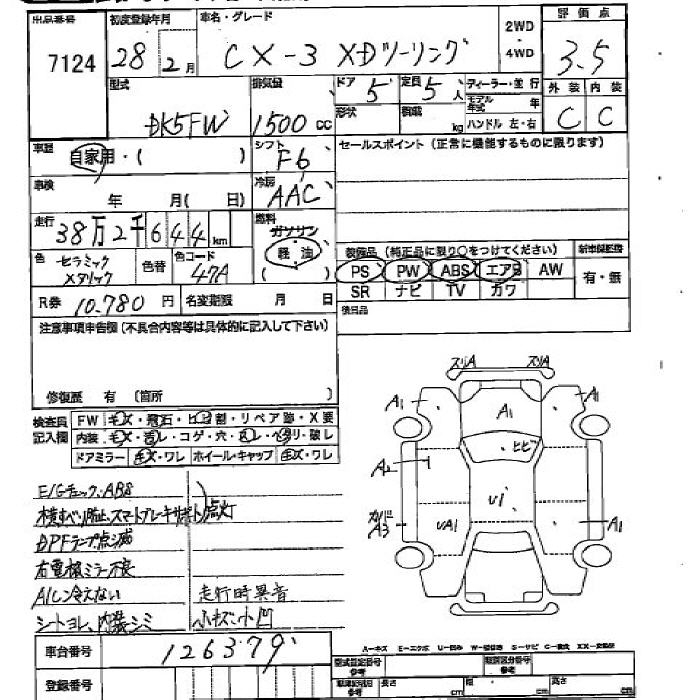 出品番号 初度登録年月 車名・グレード 2WD 評価点
7124 28年2月 CX-3 XDツーリング 4WD 3.5
型式 排気量 ドア 5 定員 5人 ディーラー・並行 外装 内装
DK5FW 1500cc 形状 積載 kg モデル年式 年 ハンドル 左・右 C C
車歴 自家用・( ) シフト F6 セールスポイント(正常に機能するものに限ります)
車検 年 月( 日) 冷房 AAC
走行 38万2千644km 燃料 ガソリン 軽油 ( )
装備品(純正品に限り○をつけてください) 新車保証書
色 セラミックメタリック 色替 色コード 47A PS PW ABS エアB AW 有・無
SR ナビ TV カワ
R券 10,780円 名変期限 月 日 後日品
注意事項申告欄(不具合内容等は具体的に記入して下さい)
修復歴 有(箇所 )
検査員記入欄 FW キズ・飛石・ヒビ割・リペア跡・X要
内装 キズ・汚レ・コゲ・穴・スレ・ヘタリ・破レ
ドアミラー キズ・ワレ ホイール・キャップ キズ・ワレ
スリA スリA
A1 A1 A1
ヒビ
A2
U1
カバーA3 UA1 A1
E/Gチェック、ABS
横すべり防止、スマートブレーキサポート点灯
DPFランプ点滅
右電格ミラー不良
A/C冷えない 走行時異音
シートヨレ、内装シミ 小キズ・小凹
車台番号 126379
A-キズ E-エクボ U-凹み W-補修跡 S-サビ C-腐食 XX-交換済
登録番号 型式指定番号 参考 類別区分番号 参考
長さ cm 幅 cm 高さ cm